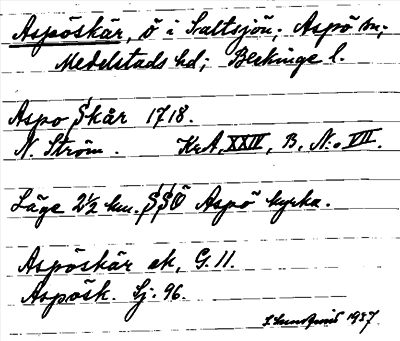 Aspöskär, ö i Saltsjön; Aspö sn;
Medelstads hd; Blekinge l.
Aspo Skår 1718.
N. Ström. KrA, XXIV, B, N:o VII.
Läge 2½ km. SSÖ Aspö kyrka.
Aspöskär ek, G. 11.
Aspösk. Sj. 96.
1937